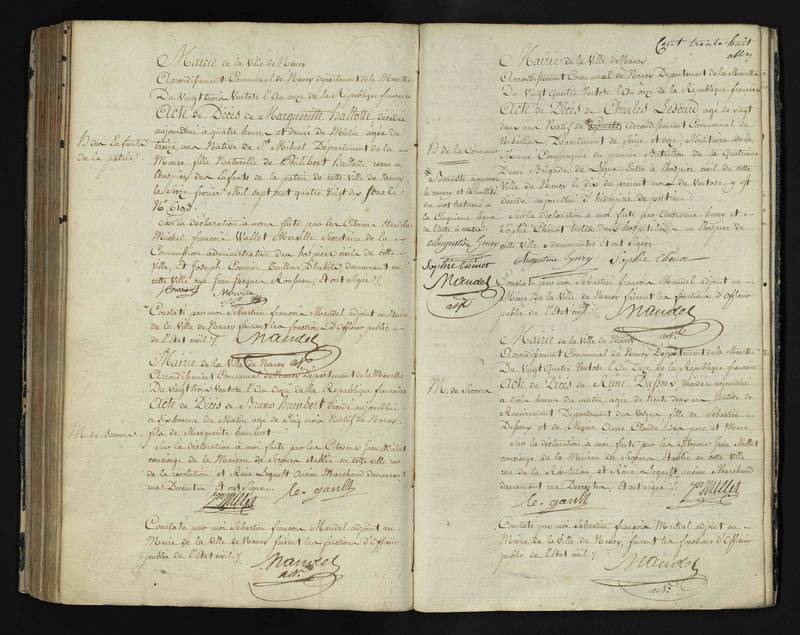 Mairie de la Ville de Nancy
Arrondissement Communal de Nancy département de la Meurthe
Du Vingt trois Ventose l'An onze de la République française
Acte de Décès de Margueritte Ballotte, décédée
aujourd'hui à quatre heures et demie du Matin agée de
treize ans Native de St Mihiel Département de la
Meuse fille Naturelle de Philibert Ballotte
hospice des Enfants de la patrie de cette Ville de Nancy
le février Mil sept cent quatre vingt dix sous le
No. 6193.
Sur la déclaration à nous faite par les Citoyens Stanislas
Michel françois Wallet Merville Secrétaire de la
Commission administrative des hospices civils de cette
Ville, et Joseph Courrier Tailleur D'habits, demeurant en
cette Ville rue Jean Jacques Rousseau, Et ont signé /.
Courrier Merville
Constaté par moi Sébastien françois Mandel adjoint au Maire
de la Ville de Nancy faisant les fonctions D'Officier public
de l'Etat civil /.
Mandel
adt.
H des Enfants
de la patrie
Mairie de la Ville de Nancy
Arrondissement Communal de Nancy Département de la Meurthe
Du Vingt trois Ventose l'An Onze de la République française
Acte de Décès de Bruno Humbert décédé aujourd'hui
à heures du Matin agé de Cinq mois Natif de Nancy
fils de Marguerite humbert
Sur la déclaration à moi faite par les Citoyens Jean Millet
concierge de la Maison de Secours établie en cette ville rue
de la révolution et Réné Legault ancien Marchand demeurant
rue Et ont signé
Jn Millet le gault
Constaté par moi Sébastien françois Mandel adjoint au
Maire de la Ville de Nancy faisant les fonctions D'Officier
public de l'Etat civil /.
Mandel
adt.
M. de Secours
Cent trente huit
Mairie de la Ville de Nancy
Arrondissement Communal de Nancy Département de la Meurthe
Du Vingt quatre Ventose l'An onze de la République française
Acte de Décès de Charles Lesourd agé de vingt
deux ans Natif de Arrondissement Communal de
Versailles, Département de Seine et oise, Militaire de la
Sixième Compagnie du premier Bataillon de la Quatrième
Demi Brigade de Ligne Entré à l'hospice civil de cette
Ville de Nancy le dix du présent mois de Ventose y est
décédé aujourd'hui d'hidropisie de poitrine
Sur la déclaration à moi faite par Augustine henry et
Sophie Thénot toutes deux hospitalières en l'hospice de
cette Ville y demeurantes et ont signés
Augustine henry Sophie Thénot
Constaté par moi Sébastien françois Mandel adjoint au
Maire de la Ville de Nancy faisant les fonctions d'Officier
public de l'Etat civil /.
Mandel
adt.
H de la Commune
cinquième ligne
de l'acte
Augustine henry
Sophie thénot
Mandel
adjt
Mairie de la ville de Nancy
Arrondissement Communal de Nancy Département de la Meurthe
Du Vingt quatre Ventose l'An Onze de la République française
Acte de Décès de Reine Dufour, décédée aujourd'hui
à trois heures du matin, agée de trente deux ans Native de
Remiremont Département des Vosges fille de Sébastien
Dufour et de Anne Claude ses père et Mère
Sur la déclaration à moi faite par les Citoyens Jean Millet
concierge de la Maison de Secours Etablie en cette ville
rue de la Révolution et Réné Legault ancien Marchand
demeurant rue Et ont signé /.
le gault Jn Millet
Constaté par moi Sébastien françois Mandel adjoint au
Maire de la Ville de Nancy, faisant les fonctions d'Officier
public de l'Etat civil /.
Mandel
adt.
M. de Secours